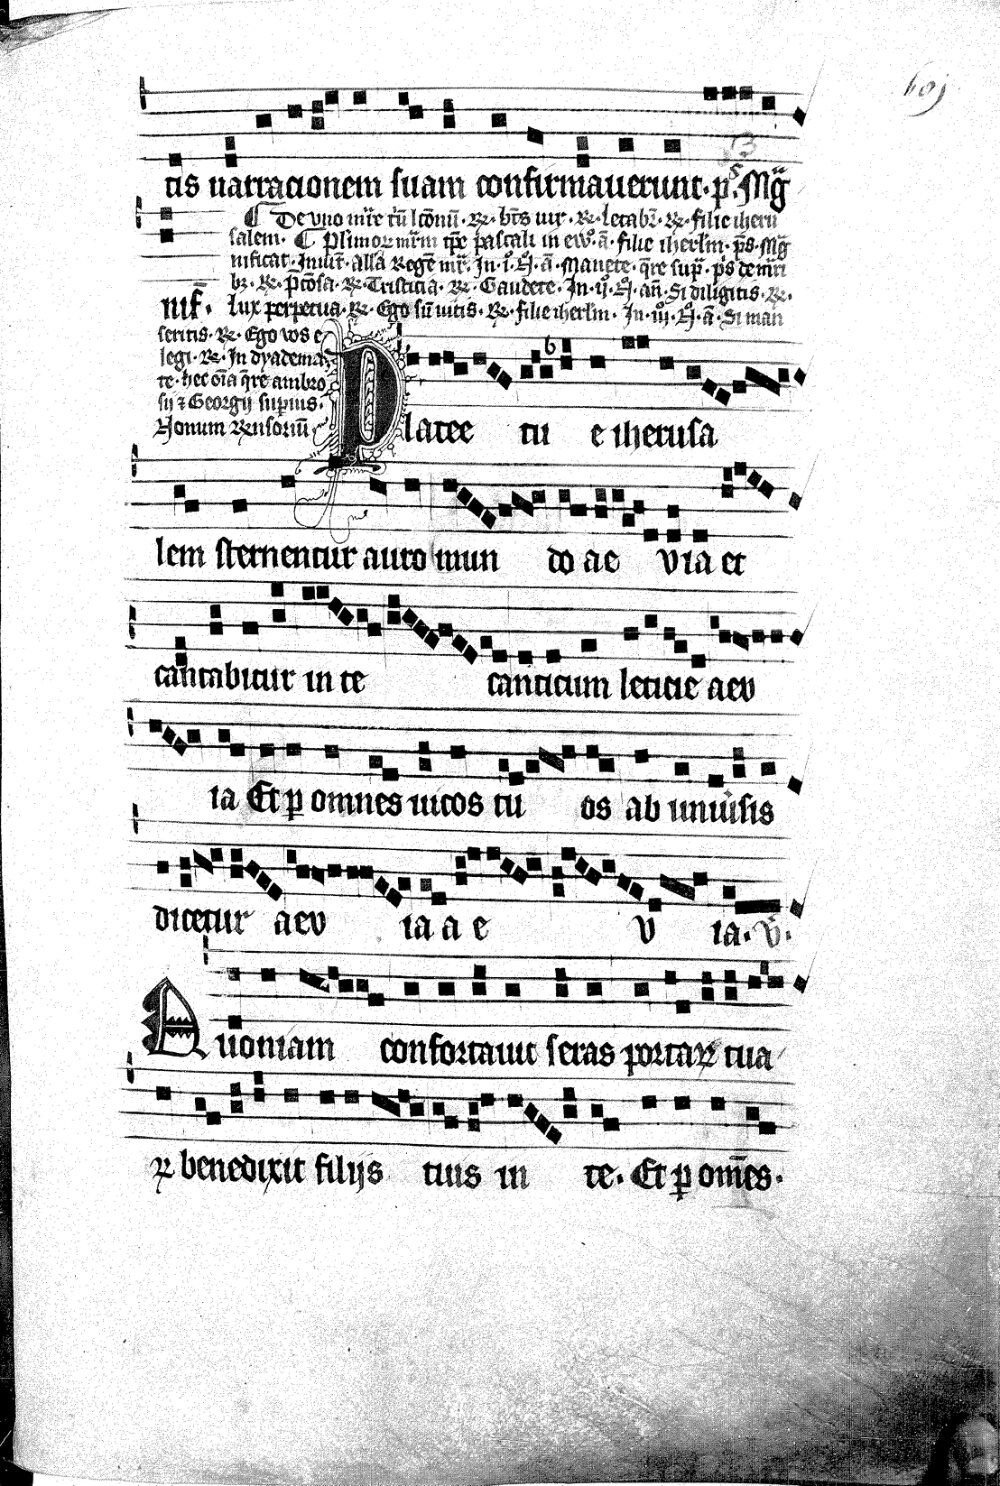 tis narracionem suam confirmaverunt. ps. Mg̅
De vno mr̅e tm̅ lc̅onu̅. R̵. bt̅s uir. R̵. letabr̅. R̵. filie iheru
salem. Plimor mr̅m tp̅e pascali in ew̅. a̅. filie iherl̅m. p̅s. Mg̅
nificat. Inuit̅. all̅a Regem̅ mr̅. In .i. N̅. a̅. Manete. q̅re sup̅. p̅s de mr̅i
bz. R̵. p̅cōsa. R̵. Tristicia. R̵. Gaudete. In .ij. N̅. an̅. Si diligitis. R̵.
nif̅. lux perpetua. R̵. Ego su̅ uitis. R̵. filie iherl̅m. In .iij. N̅. a̅. Si man
seritis. R̵. Ego vos e
legi. R̵. In dyadema
te. hec oi̅a q̅re ambro
sij ⁊ Georgij superius.
Nonum R̵nsoriu̅
Platee tu e iherusa
lem sternentur auro mun do ae via et
cantabitur in te canticum leticie aev
ia Et p̲ omnes uicos tu os ab uniu̅sis
dicetur aev ia a e v ia. V̅.
Quoniam confortauit seras portaꝝ tua
ꝝ benedixit filijs tuis in te. Et p̲ om̅es.